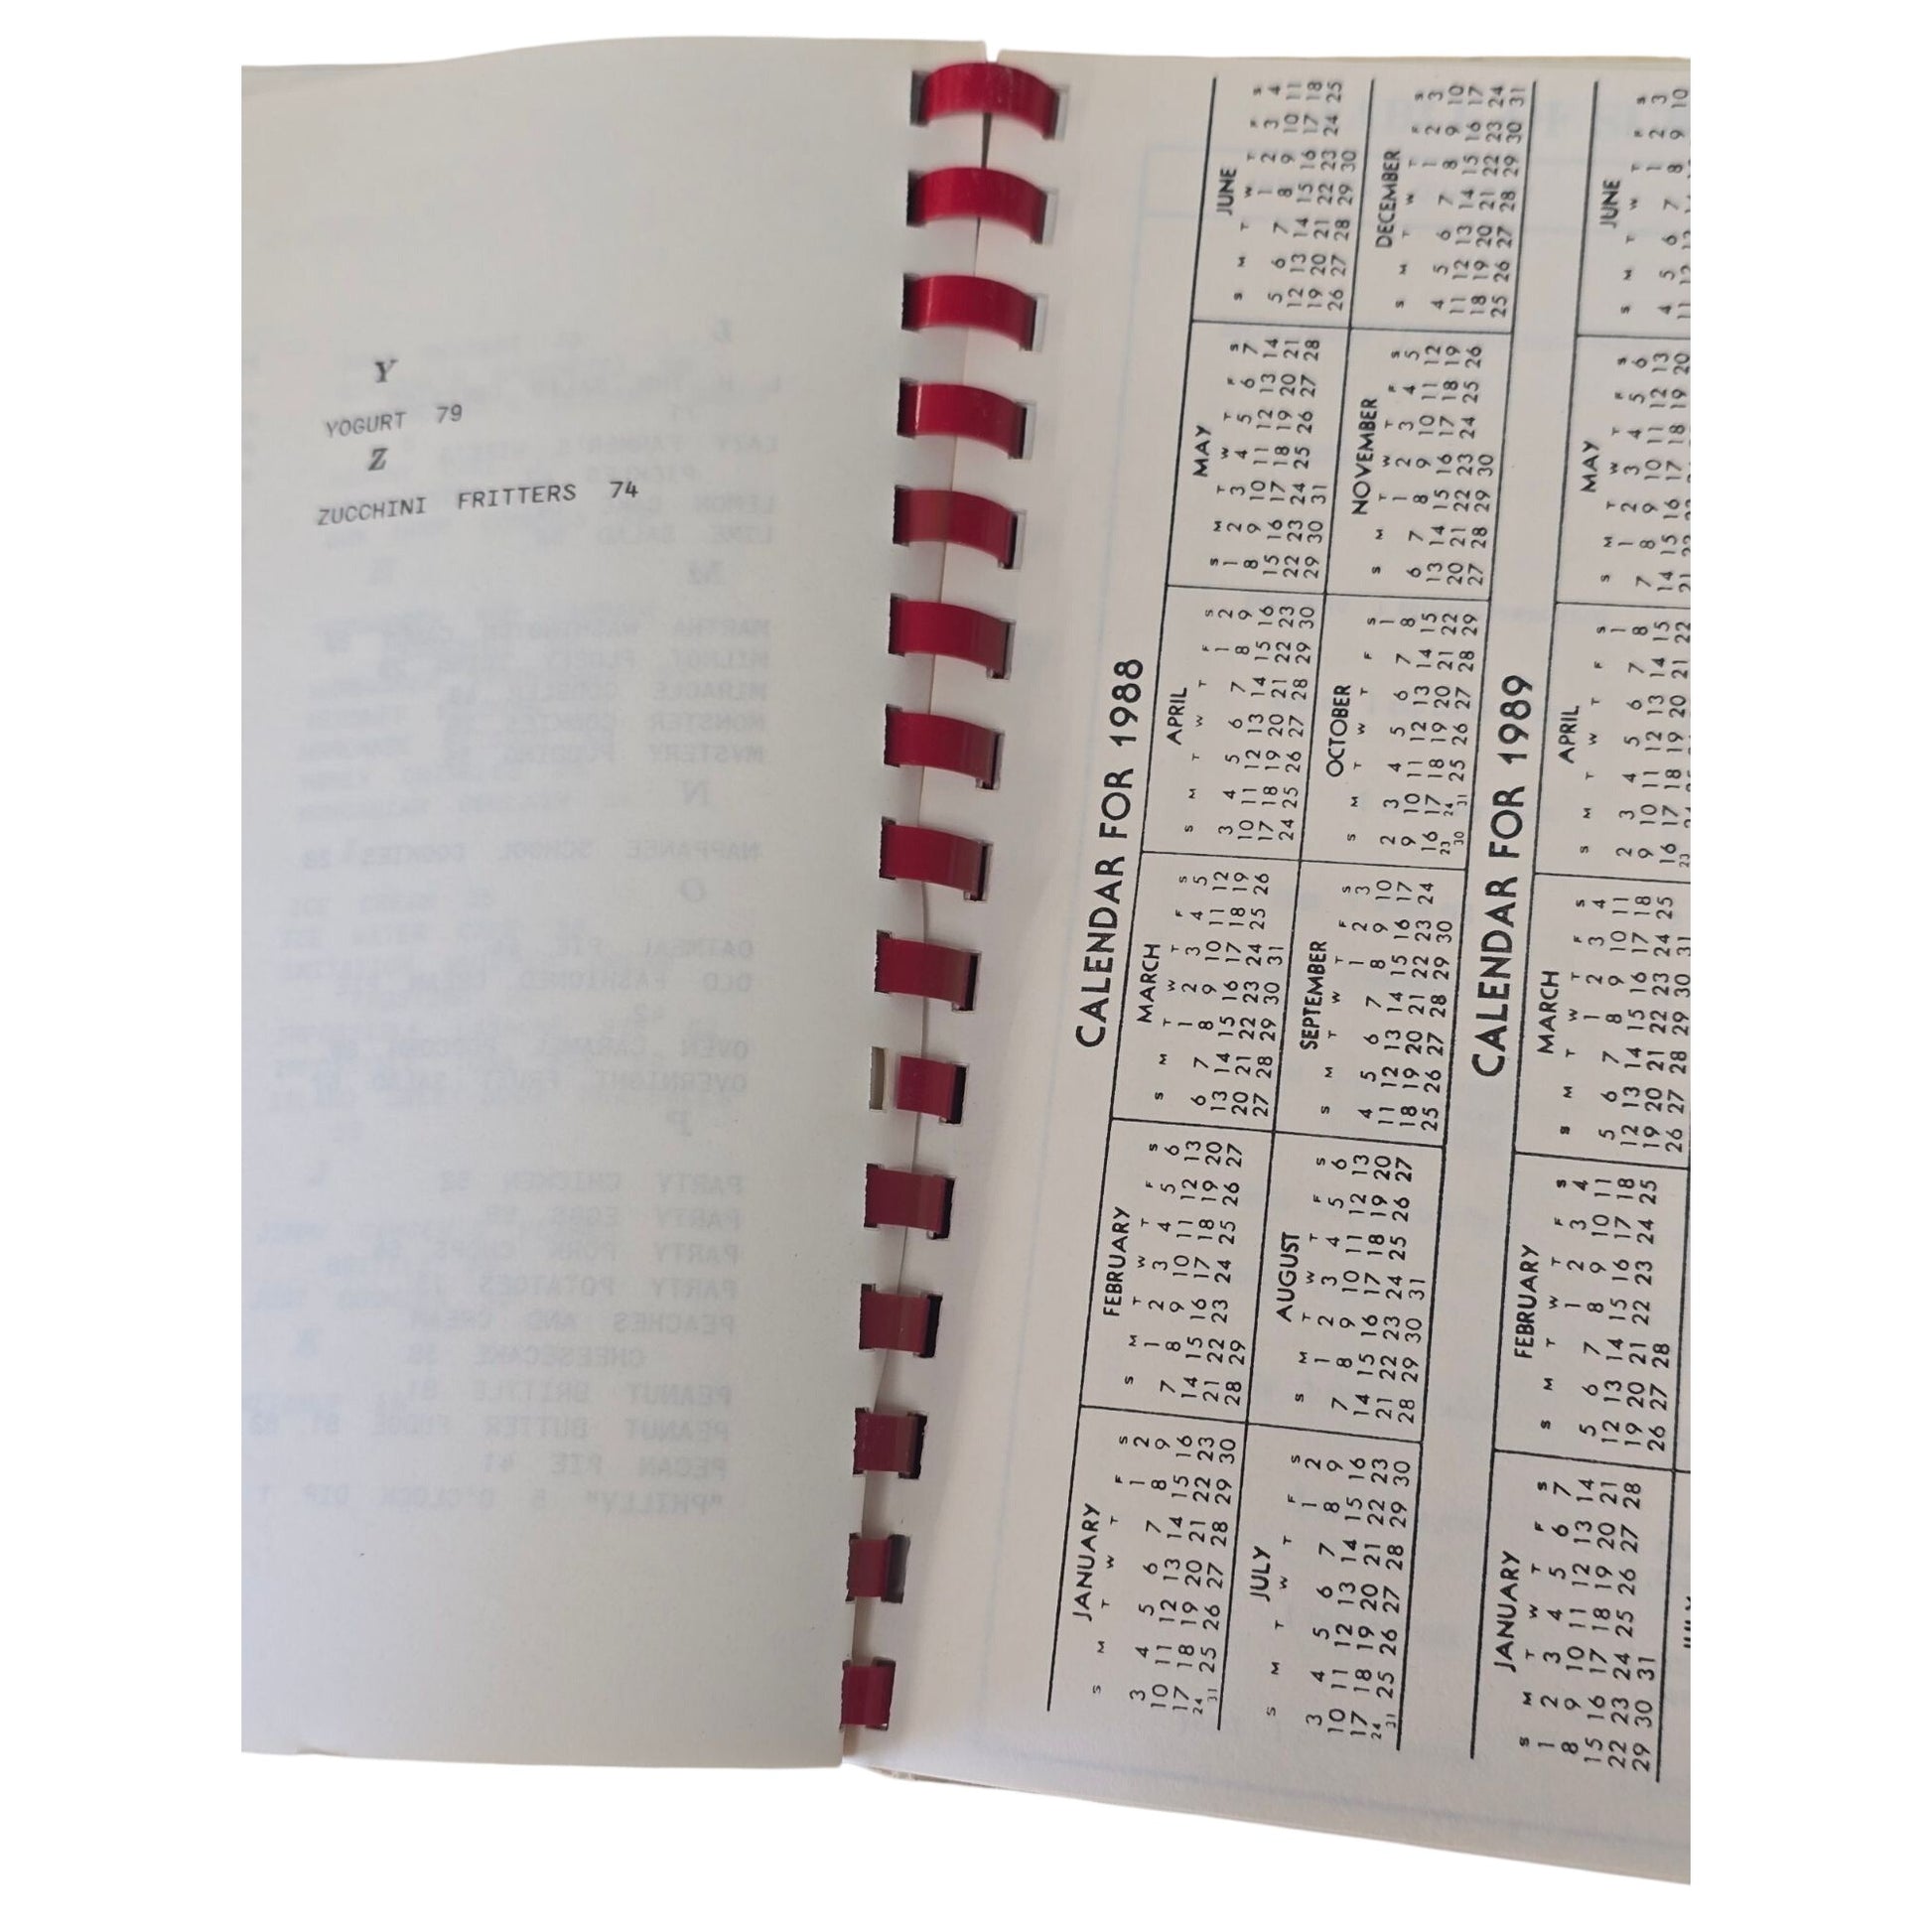 Y
YOGURT 79
Z
ZUCCHINI FRITTERS 74
CALENDAR FOR 1988
JANUARY
S M T W T F S
1 2
3 4 5 6 7 8 9
10 11 12 13 14 15 16
17 18 19 20 21 22 23
24 31 25 26 27 28 29 30
FEBRUARY
S M T W T F S
1 2 3 4 5 6
7 8 9 10 11 12 13
14 15 16 17 18 19 20
21 22 23 24 25 26 27
28 29
MARCH
S M T W T F S
1 2 3 4 5
6 7 8 9 10 11 12
13 14 15 16 17 18 19
20 21 22 23 24 25 26
27 28 29 30 31
APRIL
S M T W T F S
1 2
3 4 5 6 7 8 9
10 11 12 13 14 15 16
17 18 19 20 21 22 23
24 25 26 27 28 29 30
MAY
S M T W T F S
1 2 3 4 5 6 7
8 9 10 11 12 13 14
15 16 17 18 19 20 21
22 23 24 25 26 27 28
29 30 31
JUNE
S M T W T F S
1 2 3 4
5 6 7 8 9 10 11
12 13 14 15 16 17 18
19 20 21 22 23 24 25
26 27 28 29 30
JULY
S M T W T F S
1 2
3 4 5 6 7 8 9
10 11 12 13 14 15 16
17 18 19 20 21 22 23
24 31 25 26 27 28 29 30
AUGUST
S M T W T F S
1 2 3 4 5 6
7 8 9 10 11 12 13
14 15 16 17 18 19 20
21 22 23 24 25 26 27
28 29 30 31
SEPTEMBER
S M T W T F S
1 2 3
4 5 6 7 8 9 10
11 12 13 14 15 16 17
18 19 20 21 22 23 24
25 26 27 28 29 30
OCTOBER
S M T W T F S
1
2 3 4 5 6 7 8
9 10 11 12 13 14 15
16 17 18 19 20 21 22
23 30 24 31 25 26 27 28 29
NOVEMBER
S M T W T F S
1 2 3 4 5
6 7 8 9 10 11 12
13 14 15 16 17 18 19
20 21 22 23 24 25 26
27 28 29 30
DECEMBER
S M T W T F S
1 2 3
4 5 6 7 8 9 10
11 12 13 14 15 16 17
18 19 20 21 22 23 24
25 26 27 28 29 30 31
CALENDAR FOR 1989
JANUARY
S M T W T F S
1 2 3 4 5 6 7
8 9 10 11 12 13 14
15 16 17 18 19 20 21
22 23 24 25 26 27 28
29 30 31
FEBRUARY
S M T W T F S
1 2 3 4
5 6 7 8 9 10 11
12 13 14 15 16 17 18
19 20 21 22 23 24 25
26 27 28
MARCH
S M T W T F S
1 2 3 4
5 6 7 8 9 10 11
12 13 14 15 16 17 18
19 20 21 22 23 24 25
26 27 28 29 30 31
APRIL
S M T W T F S
1
2 3 4 5 6 7 8
9 10 11 12 13 14 15
16 17 18 19 20 21 22
23
MAY
S M T W T F S
1 2 3 4 5 6
7 8 9 10 11 12 13
14 15 16 17 18 19 20
JUNE
S M T W T F S
1 2 3
4 5 6 7 8 9 10